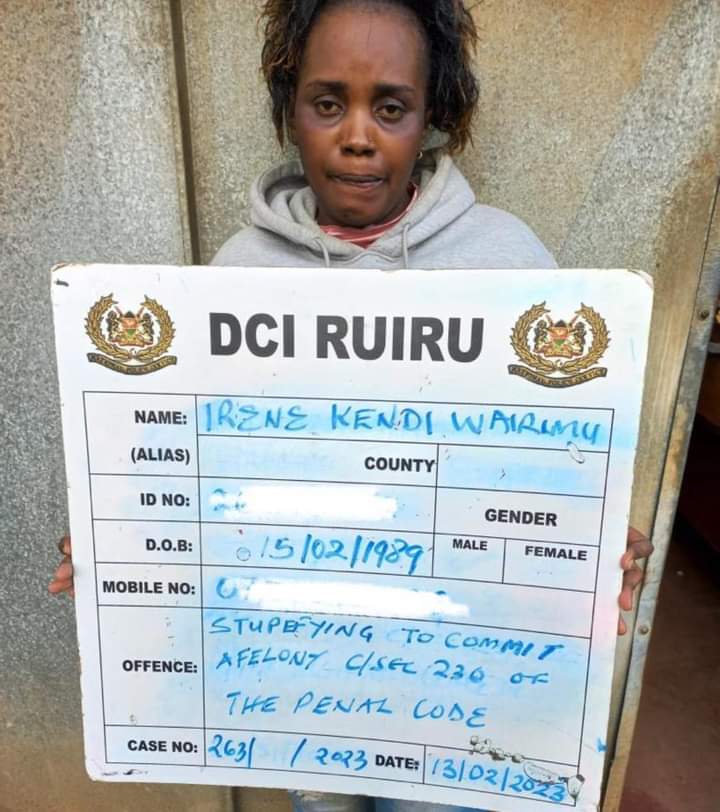 DCI RUIRU
NAME: IRENE KENDI WAIRIMU
(ALIAS) COUNTY
ID NO: 2
GENDER
D.O.B: 15/02/1989 MALE FEMALE
MOBILE NO: 07
OFFENCE: STUPEFYING TO COMMIT
A FELONY C/SEC 230 OF
THE PENAL CODE
CASE NO: 263/ / 2023 DATE: 13/02/2023